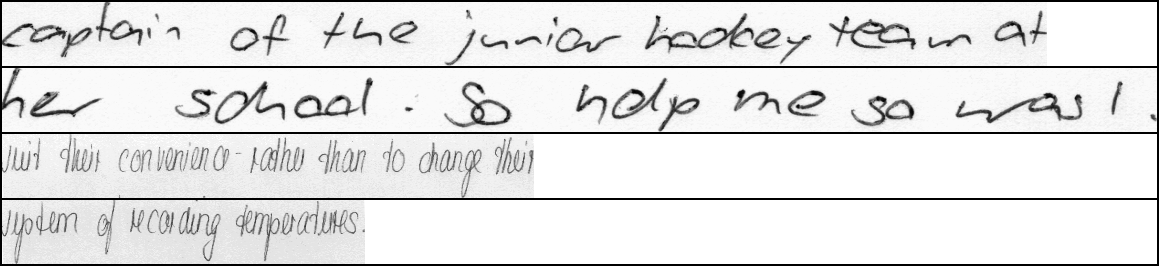 captain of the junior hockey team at
her school. So help me so was I.
suit their convenience - rather than to change their
system of recording temperatures.